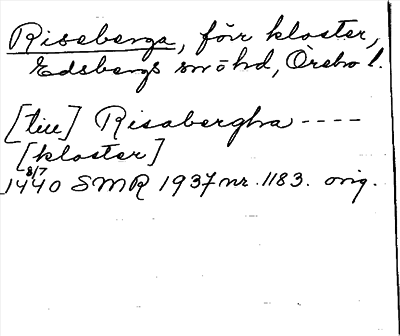 Riseberga, förr kloster,
Edsbergs sn ö hd, Örebro l.
[till] Risabergha ----
[kloster]
8/7
1440 SMR 1937 nr. 1183. orig.